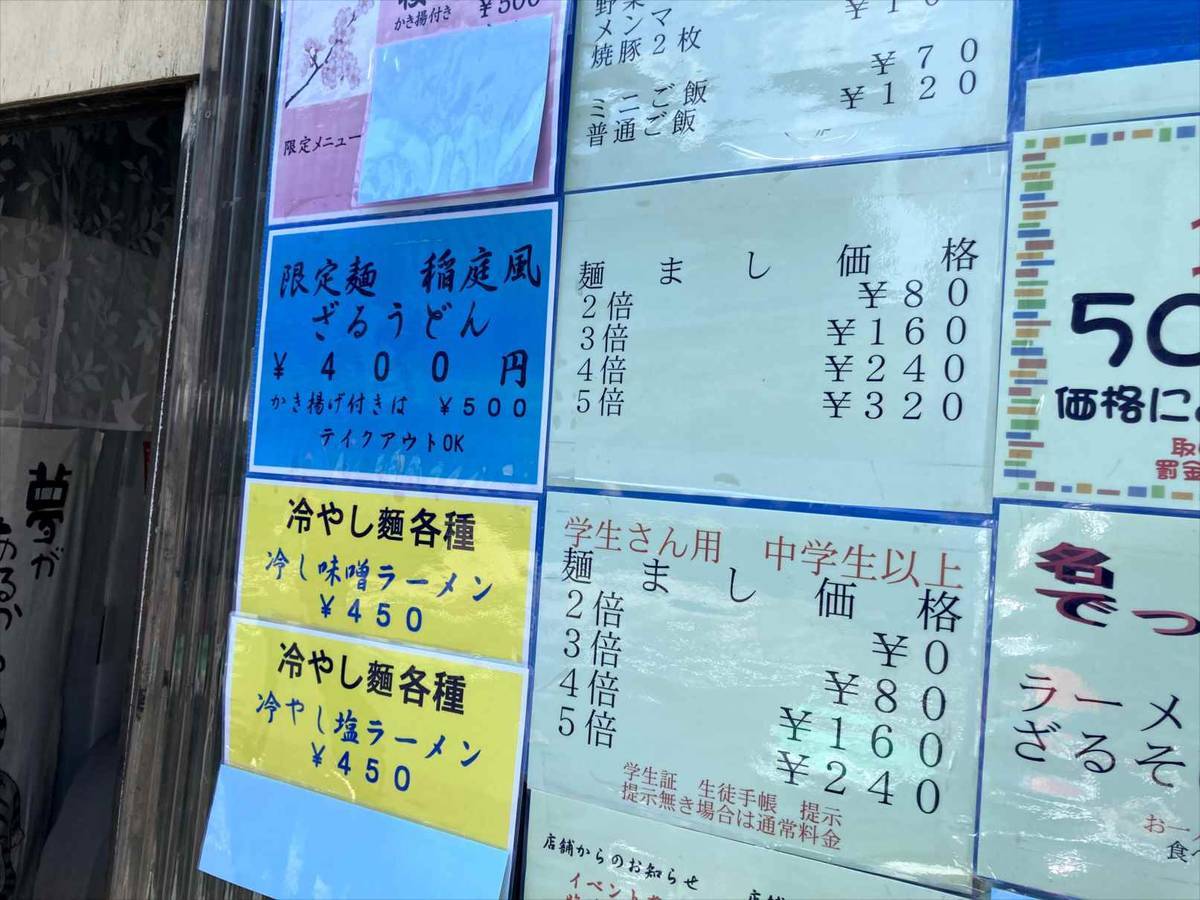 かき揚付き ¥500
限定メニュー
限定麺 稲庭風
ざるうどん
¥400円
かき揚げ付きは ¥500
テイクアウトOK
冷やし麺各種
冷し味噌ラーメン
¥450
冷やし麺各種
冷やし塩ラーメン
¥450
メンマ
焼豚2枚
¥70
¥120
ミニご飯
普通ご飯
麺まし価格
2倍 ¥80
3倍 ¥160
4倍 ¥240
5倍 ¥320
学生さん用 中学生以上
麺まし価格
2倍 ¥0
3倍 ¥80
4倍 ¥160
5倍 ¥240
学生証 生徒手帳 提示
提示無き場合は通常料金
店舗からのお知らせ
イベント
50
価格に
罰金
名
でっ
ラーメ
ざるそ
お一
食べ
夢が
あるから